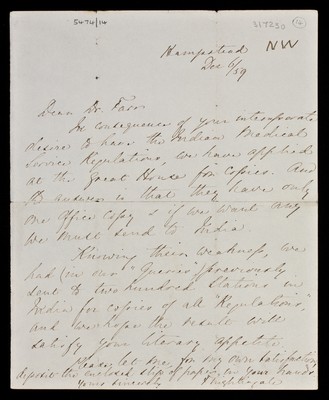 5474/14
317230
14
NW
Hampstead
Dec 6/59
Dear Dr. Farr
In consequence of your
desire to have the Indian Medical
Service Regulations, we have applied
at the Great House for copies. And
the answer is that they have only
one Office copy & if we want any
we must send to India.
Knowing their weakness, we
had (in our "Queries") previously
sent to two hundred Stations in
India for copies of all "Regulations",
and we hope the result will
satisfy your literary appetite.
Please let me, for my own satisfaction,
deposit the enclosed slip of paper in your hands
Yours sincerely F Nightingale